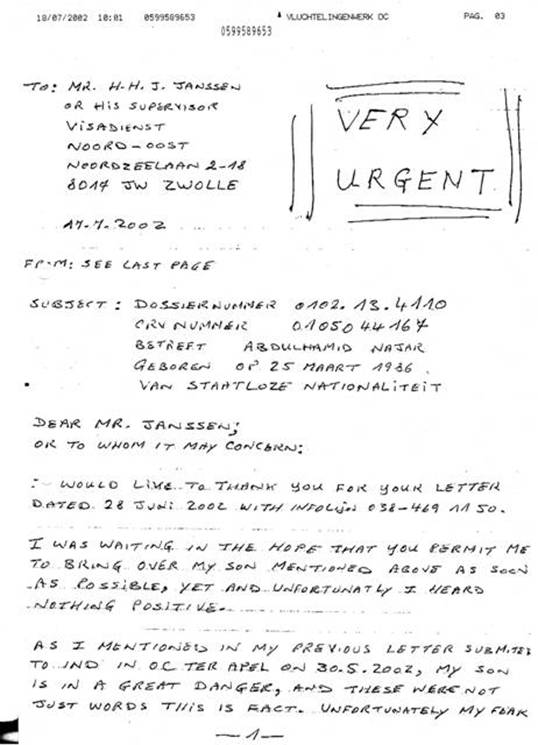 18/07/2002 10:01 0599589653 VLUCHTELINGENWERK OC PAG. 03
0599589653
TO: MR. H.H.J. JANSSEN
OR HIS SUPERVISOR
VISADIENST
NOORD-OOST
NOORDZEELAAN 2-18
8017 JW ZWOLLE
VERY
URGENT
17.7.2002
FROM: SEE LAST PAGE
SUBJECT: DOSSIERNUMMER 0102.13.4110
CRV NUMMER 0105044167
BETREFT ABDULHAMID NAJAR
GEBOREN OP 25 MAART 1986
VAN STAATLOZE NATIONALITEIT
DEAR MR. JANSSEN;
OR TO WHOM IT MAY CONCERN:
I WOULD LIKE TO THANK YOU FOR YOUR LETTER
DATED 28 JUNI 2002 WITH INFOLIJN 038-469 11 50.
I WAS WAITING IN THE HOPE THAT YOU PERMIT ME
TO BRING OVER MY SON MENTIONED ABOVE AS SOON
AS POSSIBLE, YET AND UNFORTUNATLY I HEARD
NOTHING POSITIVE.
AS I MENTIONED IN MY PREVIOUS LETTER SUBMITED
TO IND IN OC TER APEL ON 30.5.2002, MY SON
IS IN A GREAT DANGER, AND THESE WERE NOT
JUST WORDS THIS IS FACT. UNFORTUNATELY MY FEAR
—1—